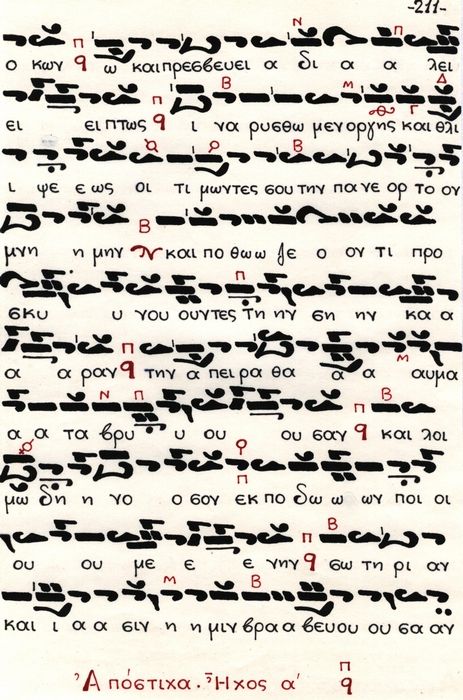 -211-
ο κων ω και πρεσβευει α δι α α λει
ει ει πτως ι να ρυσθω μεν οργης και θλι
ι ψε ε ως οι τι μωντες σου την πα νε ορ το ου
μνη η μην και πο θω ω ξε ο ου τι προ
σκυ υ νου ουντες τη ην ση ην κα α
α α ραν την α πει ρα θα α α αυμα
α α τα βρυ υ ου ου σαν και λοι
μω δη η νο ο σον εκ πο δω ω ων ποι οι
ου ου με ε ε νην σω τη ρι αν
και ι α α σιν η η μιν βρα α βευου ου σα αν
Ἀπόστιχα. Ἦχος α΄